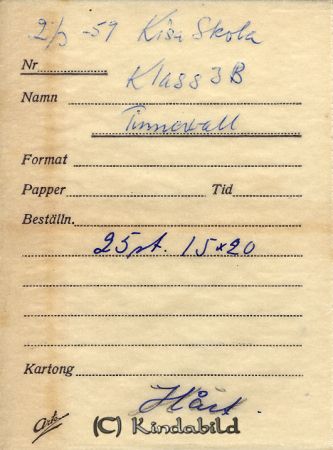 2/3 -59 Kisa Skola
Nr
Klass 3 B
Namn
Tinnerall
Format
Papper Tid
Beställn.
25 st. 15x20
Kartong
Hårt.
Ark
(C) Kindabild